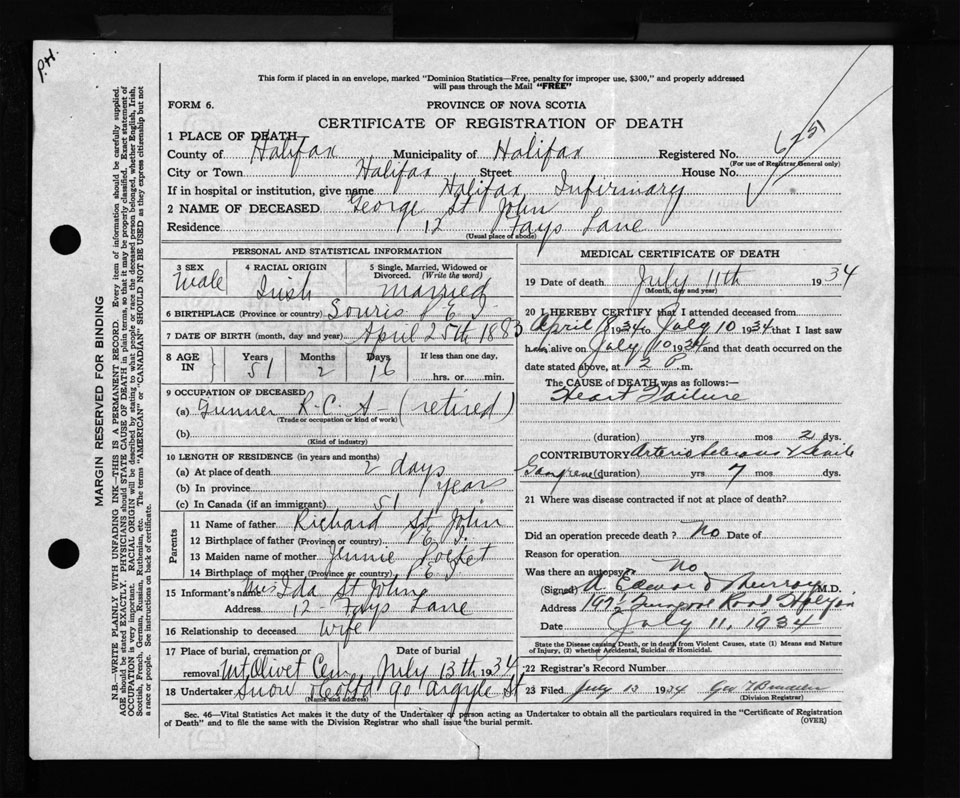 P.H.
This form if placed in an envelope, marked "Dominion Statistics—Free, penalty for improper use, $300," and properly addressed
will pass through the Mail "FREE"
FORM 6.
PROVINCE OF NOVA SCOTIA
CERTIFICATE OF REGISTRATION OF DEATH
1 PLACE OF DEATH
County of Halifax Municipality of Halifax Registered No. 6751
(For use of Registrar General only)
City or Town Halifax Street House No.
If in hospital or institution, give name Halifax Infirmary
2 NAME OF DECEASED George St John
Residence 12 Fays Lane
(Usual place of abode)
PERSONAL AND STATISTICAL INFORMATION
3 SEX Male
4 RACIAL ORIGIN Irish
5 Single, Married, Widowed or Divorced. (Write the word) Married
6 BIRTHPLACE (Province or country) Souris P E I
7 DATE OF BIRTH (month, day and year) April 25th 1883
8 AGE IN Years 51 Months 2 Days 16 If less than one day, hrs. or min.
9 OCCUPATION OF DECEASED
(a) Gunner R.C.A - (retired)
(Trade or occupation or kind of work)
(b)
(Kind of industry)
10 LENGTH OF RESIDENCE (in years and months)
(a) At place of death 2 days
(b) In province years
(c) In Canada (if an immigrant) 51
Parents
11 Name of father Richard St John
12 Birthplace of father (Province or country) P.E.I.
13 Maiden name of mother
14 Birthplace of mother (Province or country) P E I
15 Informant's name Mrs Ida St John
Address 12 Fays Lane
16 Relationship to deceased Wife
17 Place of burial, cremation or removal Mt Olivet Cem Date of burial July 13th 1934
18 Undertaker Snow & Co Ltd 90 Argyle St
(Name and address)
MEDICAL CERTIFICATE OF DEATH
19 Date of death July 11th 1934
(Month, day and year)
20 I HEREBY CERTIFY that I attended deceased from
April 1934 to July 10 1934 that I last saw
h alive on July 10 1934 and that death occurred on the
date stated above, at 2 P. m.
The CAUSE of DEATH was as follows:—
Heart Failure
(duration) yrs mos 2 dys.
CONTRIBUTORY Arteriosclerosis & Senile
Gangrene (duration) yrs 7 mos dys.
21 Where was disease contracted if not at place of death?
Did an operation precede death? No Date of
Reason for operation
Was there an autopsy? No
(Signed) A. Edward Murray M.D.
Address Road Halifax
Date July 11, 1934
State the Disease causing Death, or in death from Violent Causes, state (1) Means and Nature
of Injury, (2) whether Accidental, Suicidal or Homicidal.
22 Registrar's Record Number
23 Filed July 13 1934 Geo
(Division Registrar)
Sec. 46—Vital Statistics Act makes it the duty of the Undertaker or person acting as Undertaker to obtain all the particulars required in the "Certificate of Registration
of Death" and to file the same with the Division Registrar who shall issue the burial permit.
(OVER)
MARGIN RESERVED FOR BINDING
N.B.—WRITE PLAINLY WITH UNFADING INK—THIS IS A PERMANENT RECORD. Every item of information should be carefully supplied.
AGE should be stated EXACTLY. PHYSICIANS should STATE CAUSE OF DEATH in plain terms, so that it may be properly classified. Exact statement of
OCCUPATION is very important. RACIAL ORIGIN will be described by stating to what people or race the deceased person belonged, whether English, Irish,
Scottish, French, German, Russian, Ruthenian, etc. The terms "AMERICAN" or "CANADIAN" SHOULD NOT BE USED as they express citizenship but not
a race or people. See instructions on back of certificate.